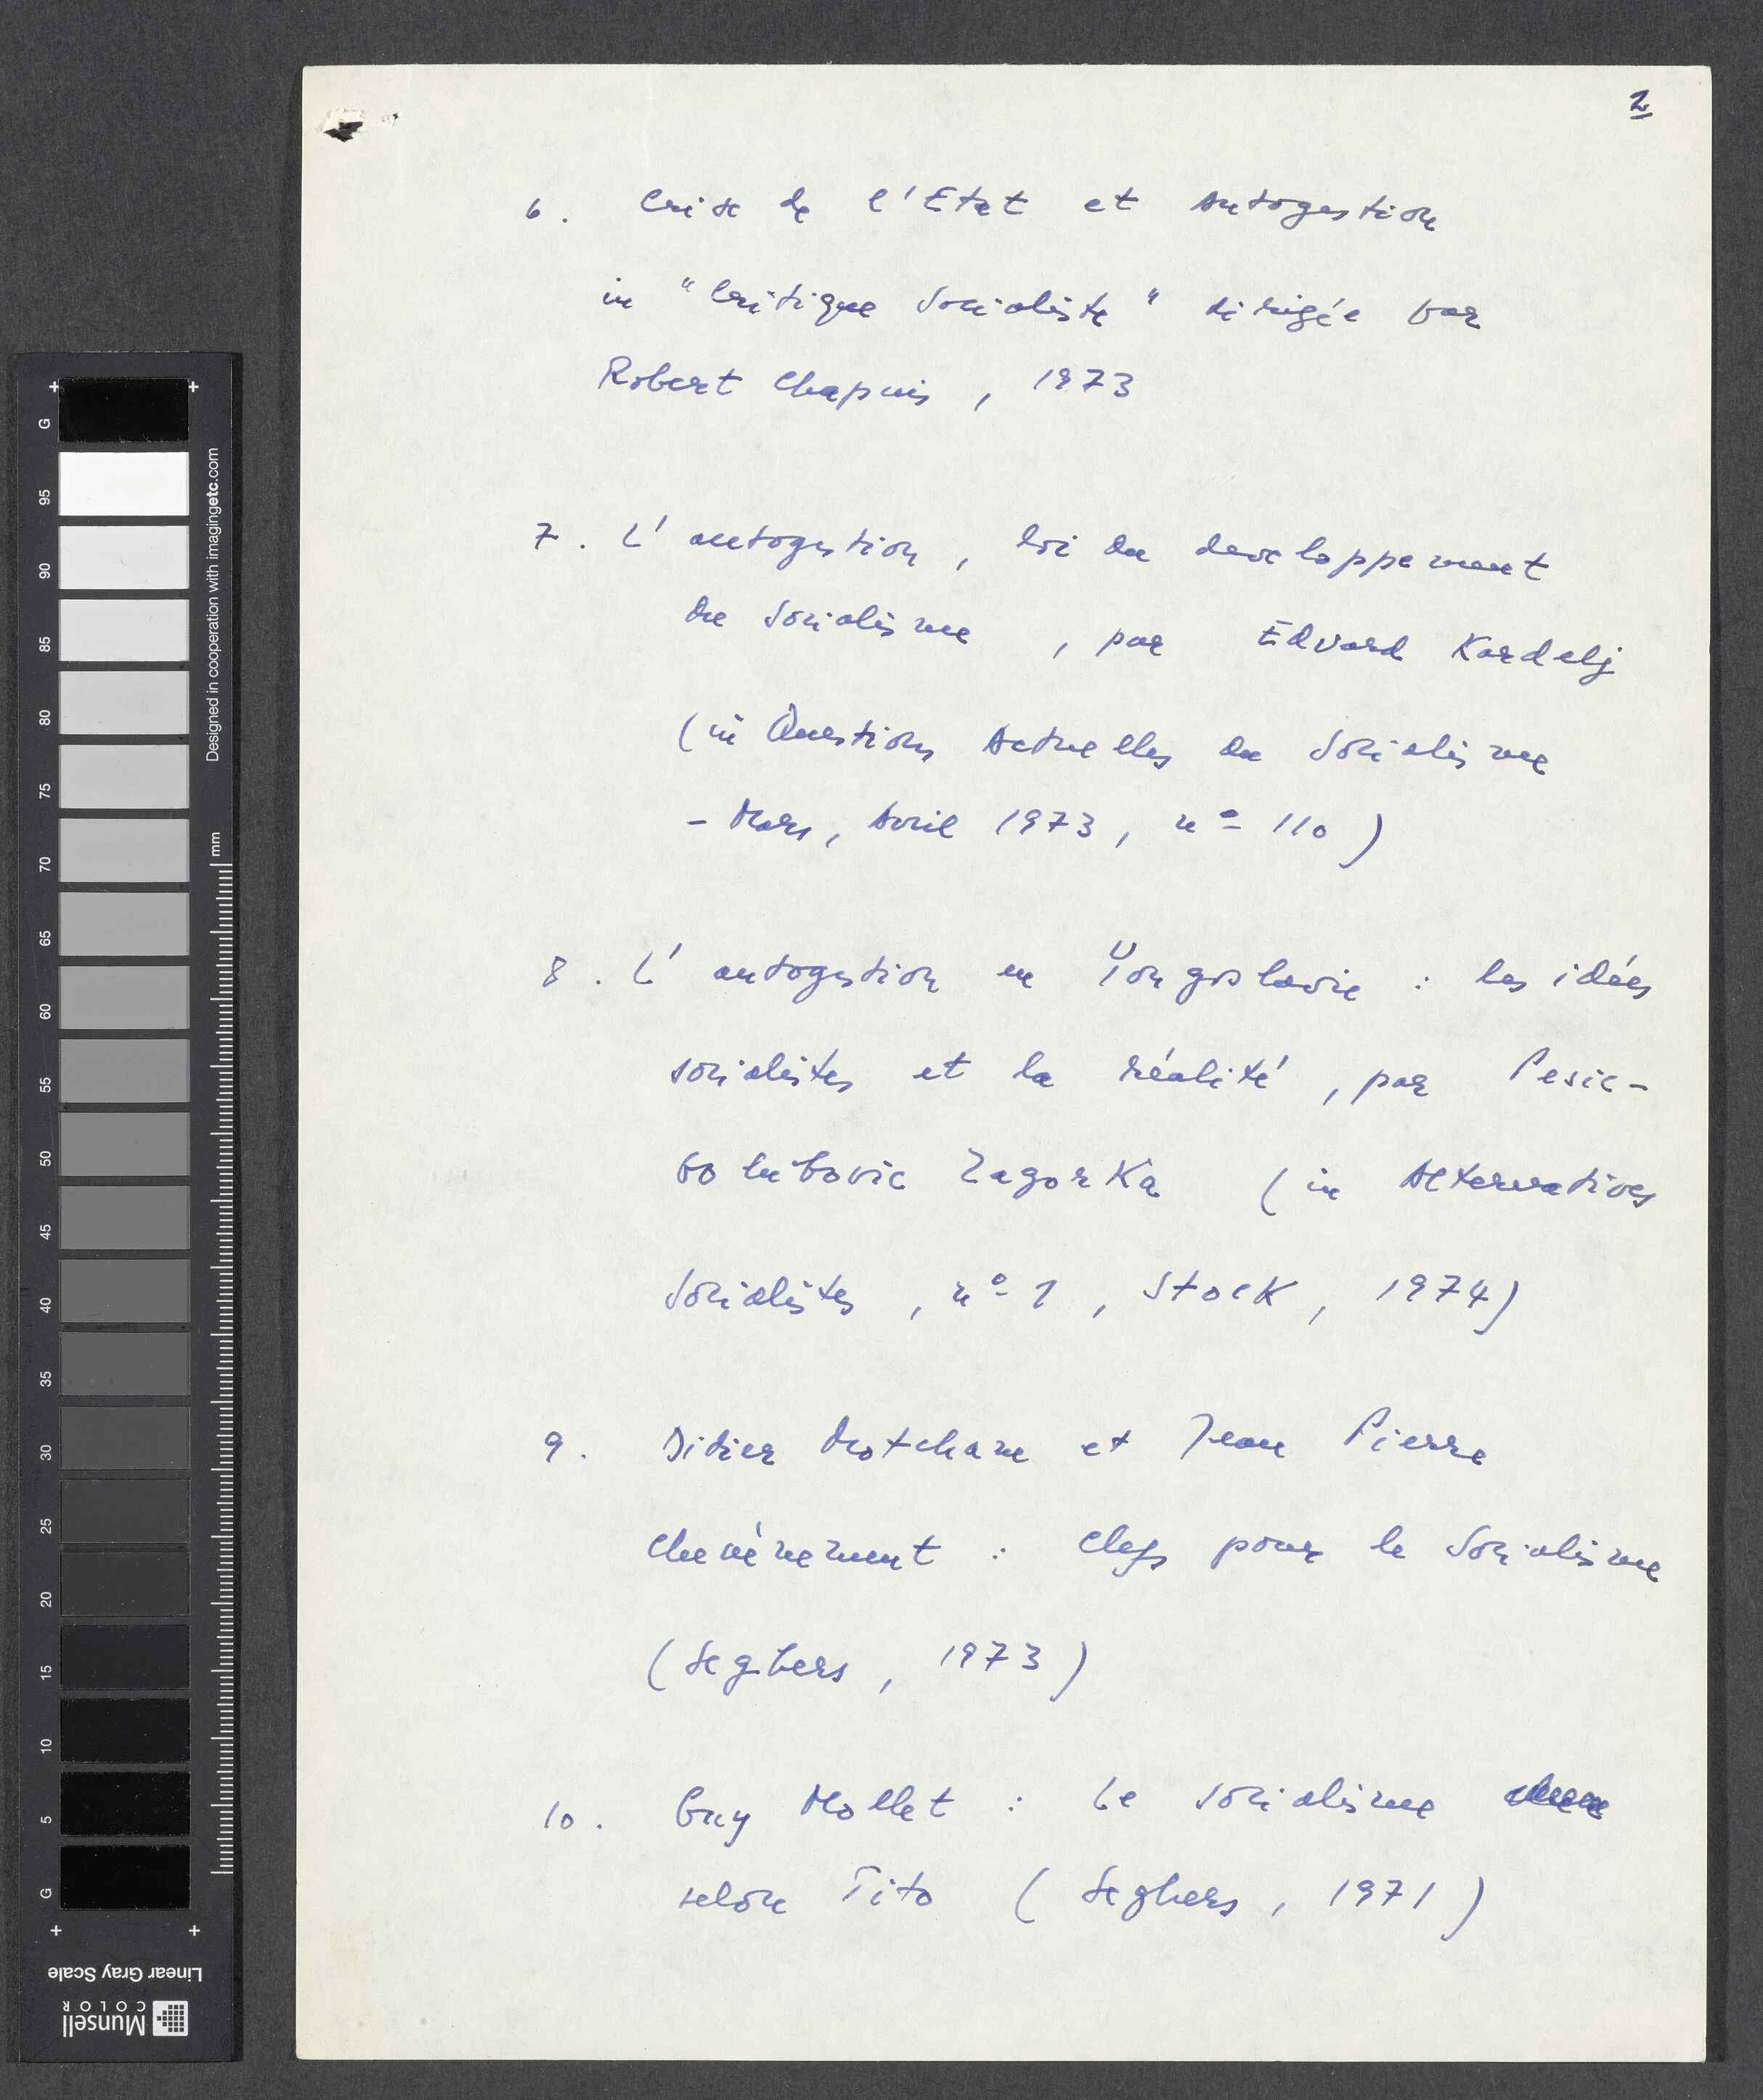 2
6. Crise de l'Etat et Autogestion
in "Critique Socialiste" dirigée par
Robert Chapuis, 1973
7. L'autogestion, loi du developpement
du Socialisme, par Edvard Kardelj
(in Questions Actuelles du Socialisme
- Mars, Avril 1973, nº 110)
8. L'autogestion en Yougoslavie : les idées
socialistes et la réalité, par Pesic-
Golubovic Zagorka (in Alternatives
Socialistes, nº 1, Stock, 1974)
9. Didier Motchane et Jean Pierre
Chevènement : Clefs pour le Socialisme
(Seghers, 1973)
10. Guy Mollet : Le Socialisme
selon Tito (Seghers, 1971)
G
95
90
85
80
75
70
65
60
55
50
45
40
35
30
25
20
15
10
5
G
Designed in cooperation with imagingetc.com
mm
Linear Gray Scale
Munsell
COLOR